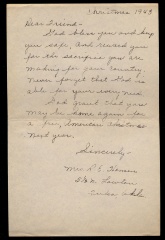 Christmas 1943
Dear Friend -
God bless you and keep
you safe, and reward you
for the sacrifice you are
making for your country.
Never forget that God is
able for your every need.
God grant that you
may be home again for
a free, American Christmas
next year.
Sincerely -
Mrs R. E.
Tulsa Okla.